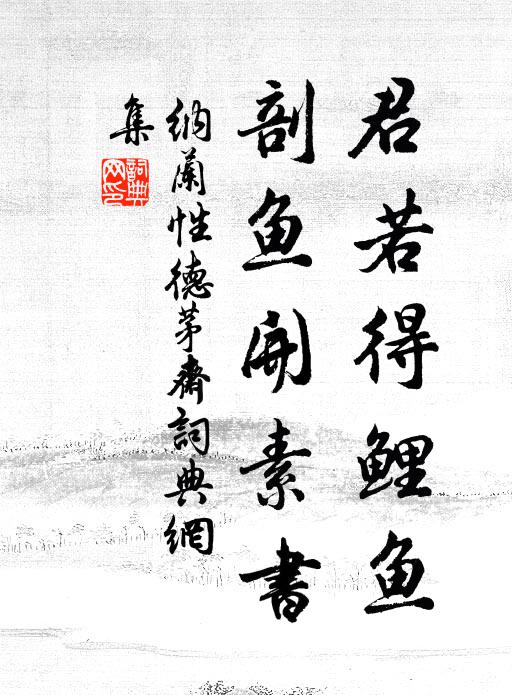 君若得鯉鱼
剖鱼開素書
納蘭性德茅齋詞典網
集
詞典
网印